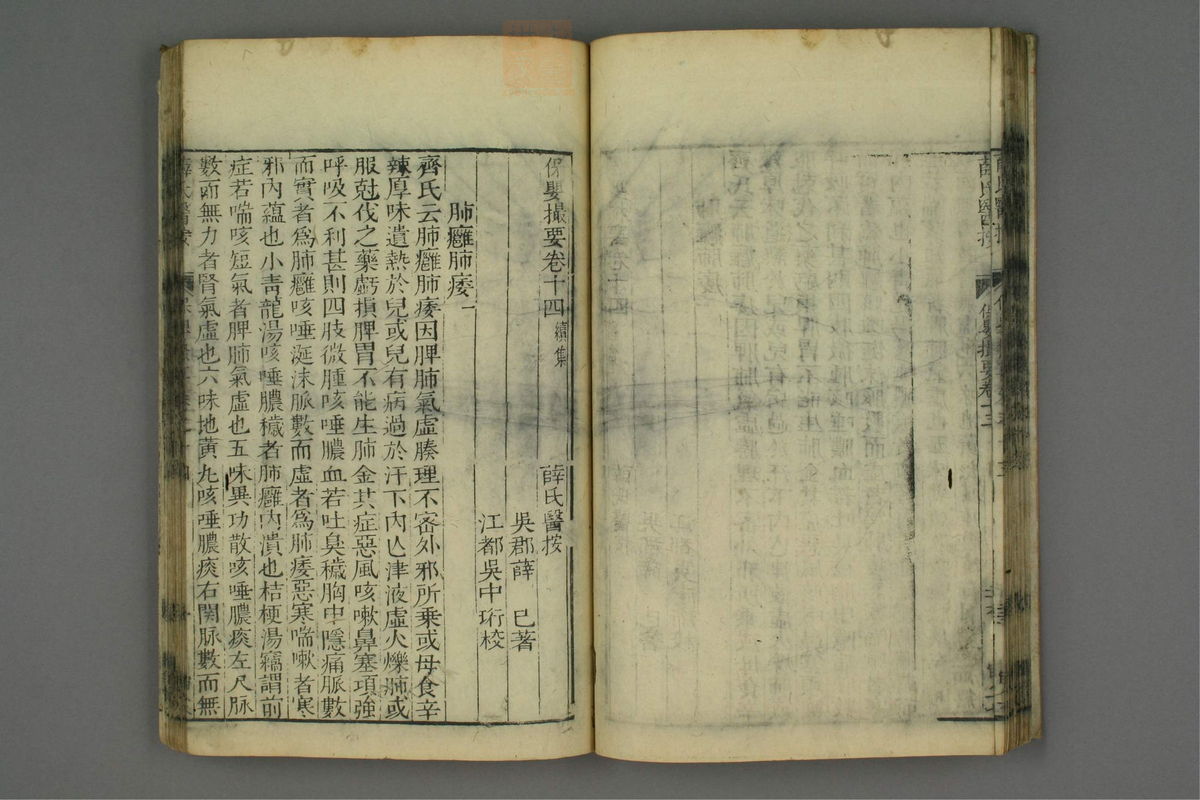 薛氏醫按
保嬰撮要卷十三
保嬰撮要卷十四 續集 薛氏醫按
吳郡薛 己著
江都吳中珩校
肺癰肺痿一
齊氏云肺癰肺痿因脾肺氣虛腠理不密外邪所乘或母食辛
辣厚味遺熱於兒或兒有病過於汗下內亾津液虛火爍肺或
服尅伐之藥虧損脾胃不能生肺金其症惡風咳嗽鼻塞項強
呼吸不利甚則四肢微腫咳唾膿血若吐臭穢胸中隱痛脈數
而實者爲肺癰咳唾涎沫脈數而虛者爲肺痿惡寒喘嗽者寒
邪內蘊也小青龍湯咳唾膿穢者肺癰內潰也桔梗湯竊謂前
症若喘咳短氣者脾肺氣虛也五味異功散咳唾膿痰左尺脉
數而無力者腎氣虛也六味地黃丸咳唾膿痰右関脉數而無